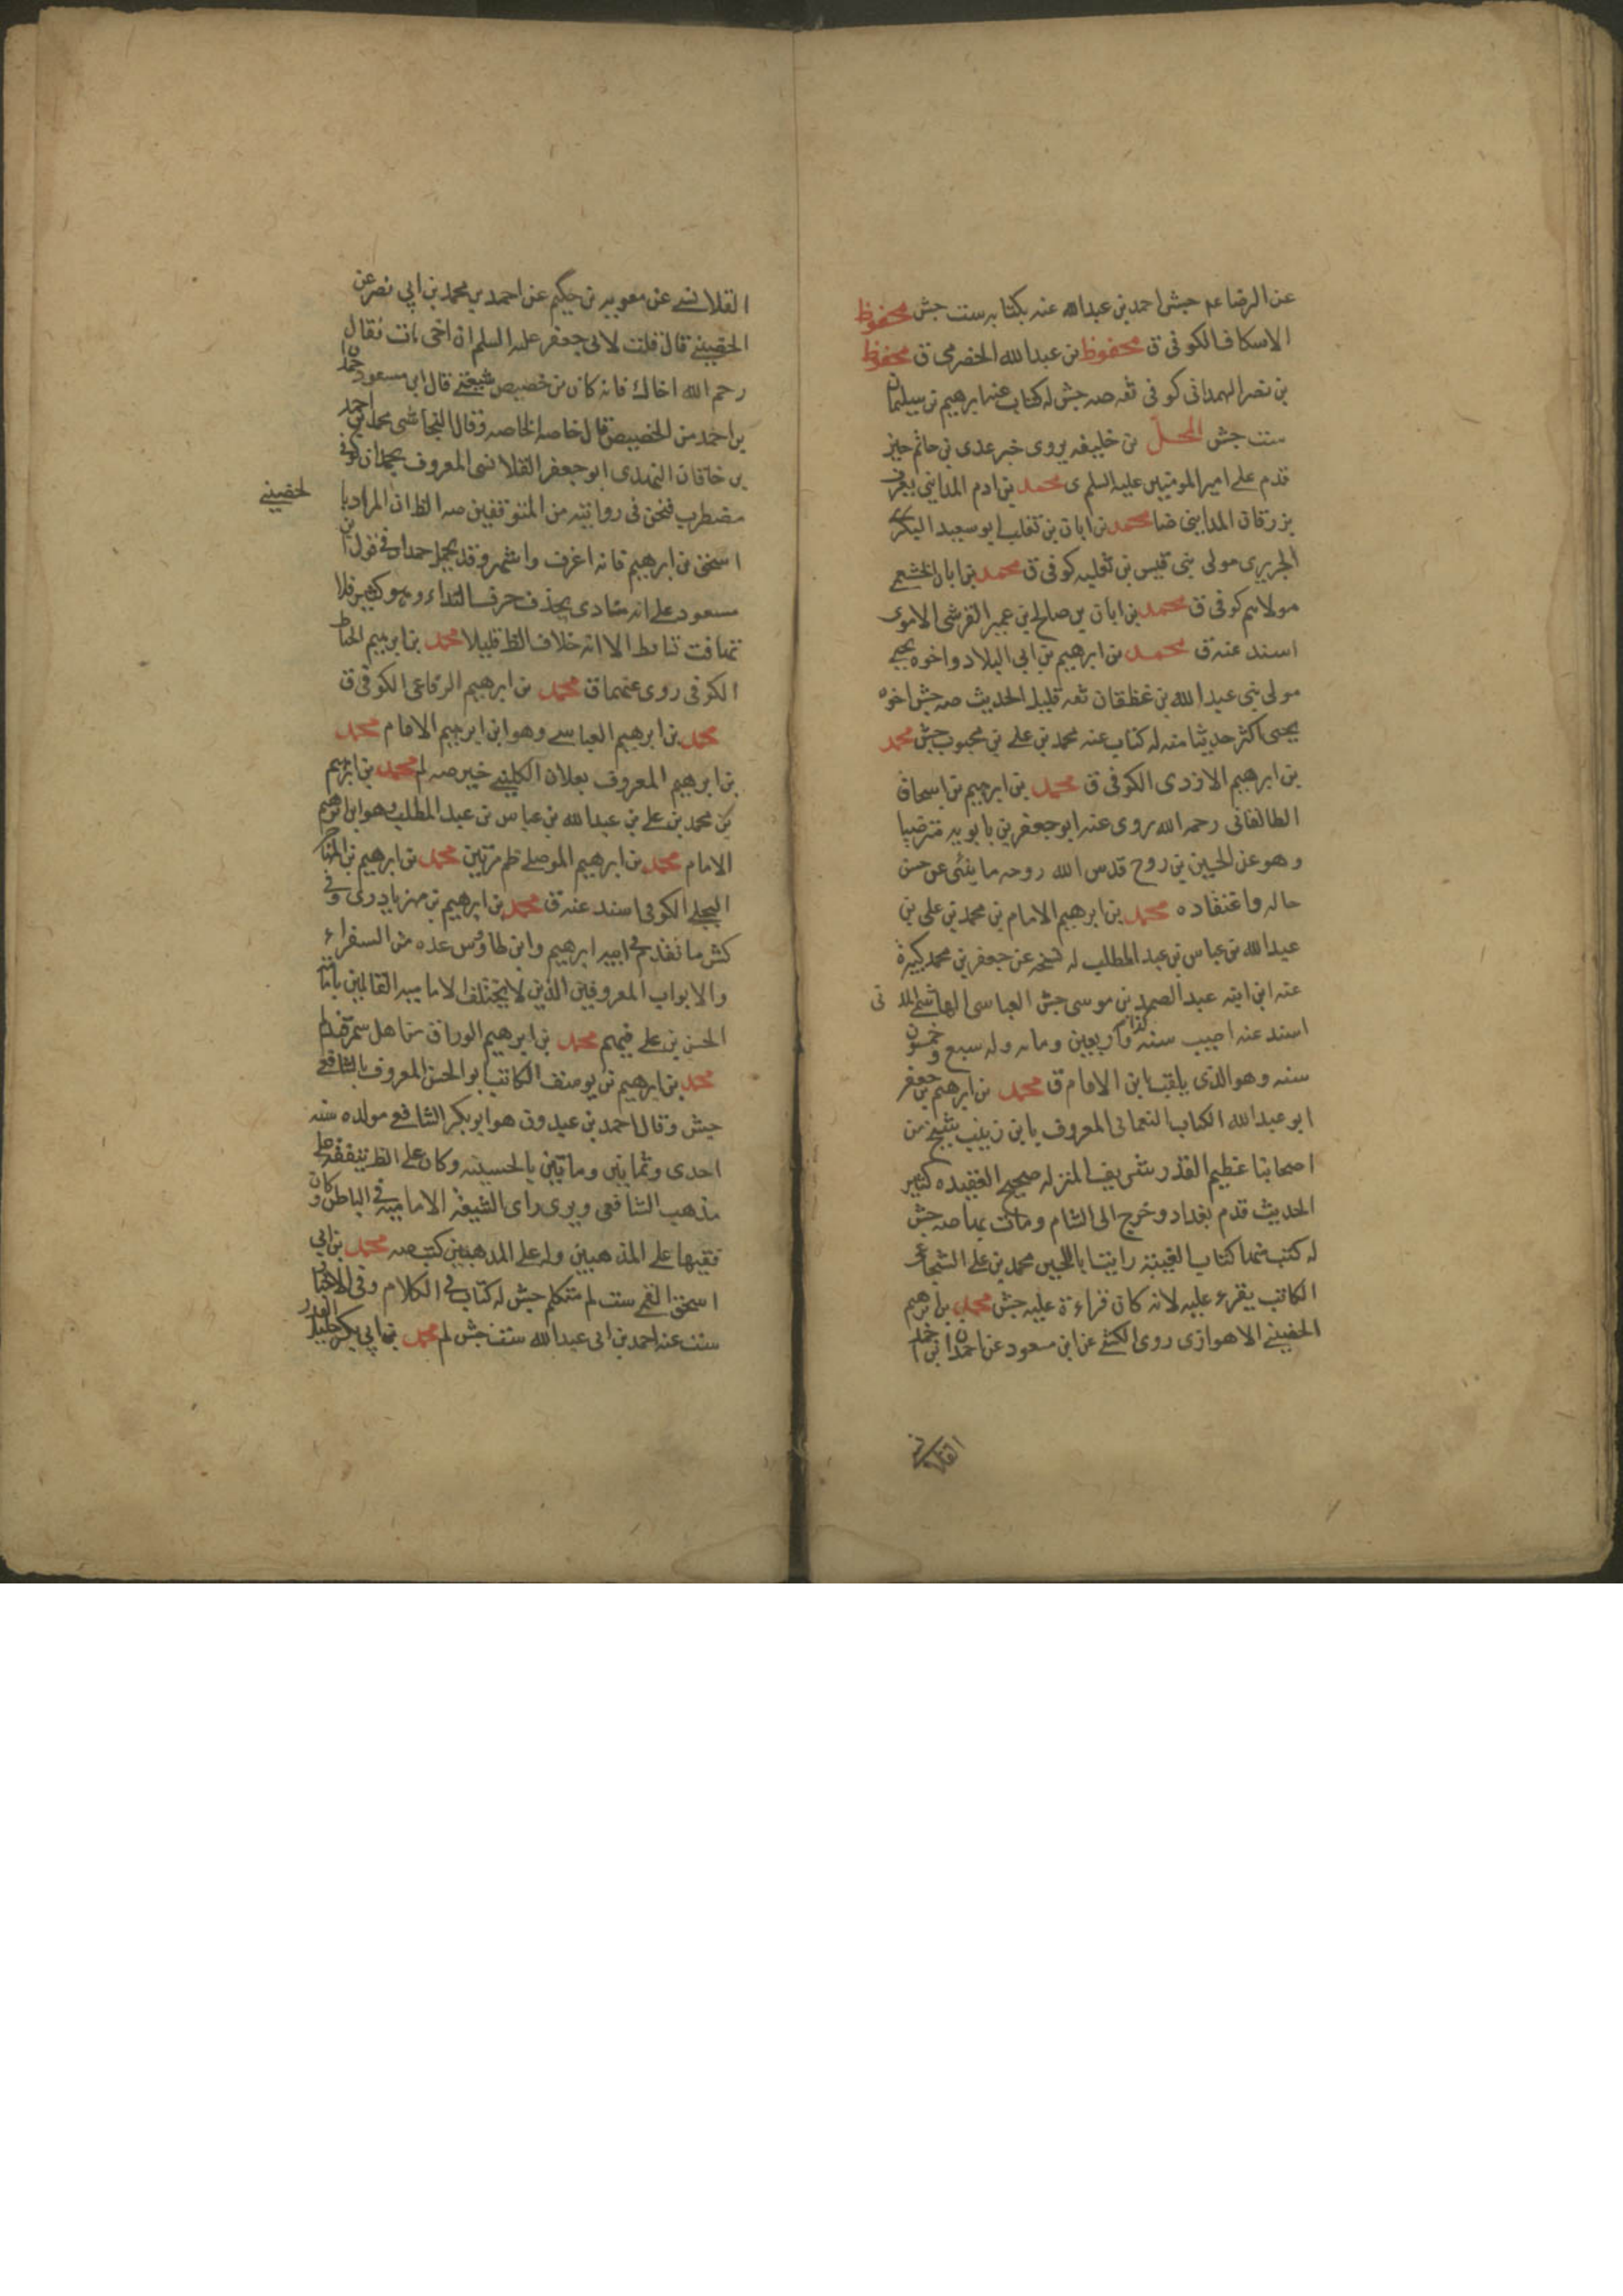 عن الرضا عم جش احمد بن عبدالله عنه بكتابه ست جش محفوظ
الاسكاف الكوفى ق محفوظ بن عبدالله الحضرمى ق محفوظ
بن نصر الهمدانى كوفى ثقه صه جش له كتاب عنه ابرهيم بن سليمان
ست جش المحل بن خليفه يروى خبر عدى بن حاتم حين
قدم على امير المومنين عليه السلم ى محمد بن ادم المداينى يعرف
بزرقان المداينى ضا محمد بن ابان بن تغلب ابو سعيد البكرى
الجريرى مولى بنى قيس بن ثعلبه كوفى ق محمد بن ابان الخثعمى
مولاهم كوفى ق محمد بن ابان بن صالح بن عمير القرشى الاموى
اسند عنه ق محمد بن ابرهيم بن ابى البلاد واخوه يحيى
مولى بنى عبد الله بن غطفان ثقه قليل الحديث صه جش اخوه
يحيى اكثر حديثا منه له كتاب عنه محمد بن على بن محبوب جش محمد
بن ابرهيم الازدى الكوفى ق محمد بن ابرهيم بن اسحاق
الطالقانى رحمه الله روى عنه ابو جعفر بن بابويه مترضيا
وهو عن الحسين بن روح قدس الله روحه ما ينبئ عن حسن
حاله واعتقاده محمد بن ابرهيم الامام بن محمد بن على بن
عبد الله بن عباس بن عبد المطلب له نسخه عن جعفر بن محمد كبيرة
عنه ابن ابنه عبد الصمد بن موسى جش العباسى الهاشمى المدنى
اسند عنه اصيب سنه كذا واربعين وماه وله سبع وخمسون
سنه وهو الذى يلقب ابن الامام ق محمد بن ابرهيم بن جعفر
ابو عبد الله الكاتب النعمانى المعروف بابن زينب شيخ من
اصحابنا عظيم القدر شريف المنزله صحيح العقيده كثير
الحديث قدم بغداد وخرج الى الشام ومات بها صه جش
له كتب منها كتاب الغيبة رايت ابا الحسين محمد بن على الشجاعى
الكاتب يقرء عليه لانه كان قراءة عليه جش محمد بن ابرهيم
الحضينى الاهوازى روى الكشى عن ابن مسعود عن حمدان بن احمد
القلانسى
القلانسى عن معويه بن حكيم عن احمد بن محمد بن ابى نصر عن
الحضينى قال قلت لابى جعفر عليه السلم ان اخى مات فقال
رحم الله اخاك فانه كان من خصيص شيعتى قال ابن مسعود حمدان
بن احمد من الخصيص قال خاصه الخاصه وقال النجاشى محمد بن احمد
بن خاقان النهدى ابو جعفر القلانسى المعروف بحمدان كوفى
مضطرب فنحن فى روايته من المتوقفين صه الظ ان المراد با
لحضينى
اسحق بن ابرهيم فانه اعرف واشهر وقد يجر احمد فى قول ابن
مسعود على انه منادى بحذف حرف النداء وهو كثير فلا
تهافت تنامط الا انه خلاف الظ قليلا محمد بن ابرهيم الحناط
الكوفى روى عنهما ق محمد بن ابرهيم الرفاعى الكوفى ق
محمد بن ابرهيم العباسى وهو ابن ابرهيم الامام محمد
بن ابرهيم المعروف بعلان الكلينى خير صه لم محمد بن ابرهيم
بن محمد بن على بن عبد الله بن عباس بن عبد المطلب وهو ابن ابرهيم
الامام محمد بن ابرهيم الموصلى ظم مرتين محمد بن ابرهيم بن المهاجر
البجلى الكوفى اسند عنه ق محمد بن ابرهيم بن مهزيار دى وفى
كش ما تقدم فى ابيه ابرهيم وابن طاوس عده من السفراء
والابواب المعروفين الذين لا يختلف الاماميه القائلين بامامة
الحسن بن على فيهم محمد بن ابرهيم الوراق من اهل سمرقند لم
محمد بن ابرهيم بن يوسف الكاتب ابو الحسن المعروف بالشافعى
جش وقال احمد بن عبدون هو ابو بكر الشافعى مولده سنه
احدى وثمانين وماتين بالحسينيه وكان على الظ يتفقه على
مذهب الشافعى ويرى راى الشيعة الاماميه فى الباطن وكان
فقيها على المذهبين وله على المذهبين كتب صه محمد بن ابى
اسحق القمى ست لم متكلم جش له كتاب فى الكلام وفى الاخبار
ست عنه احمد بن ابى عبد الله ست جش لم محمد بن ابى بكر جليل القدر